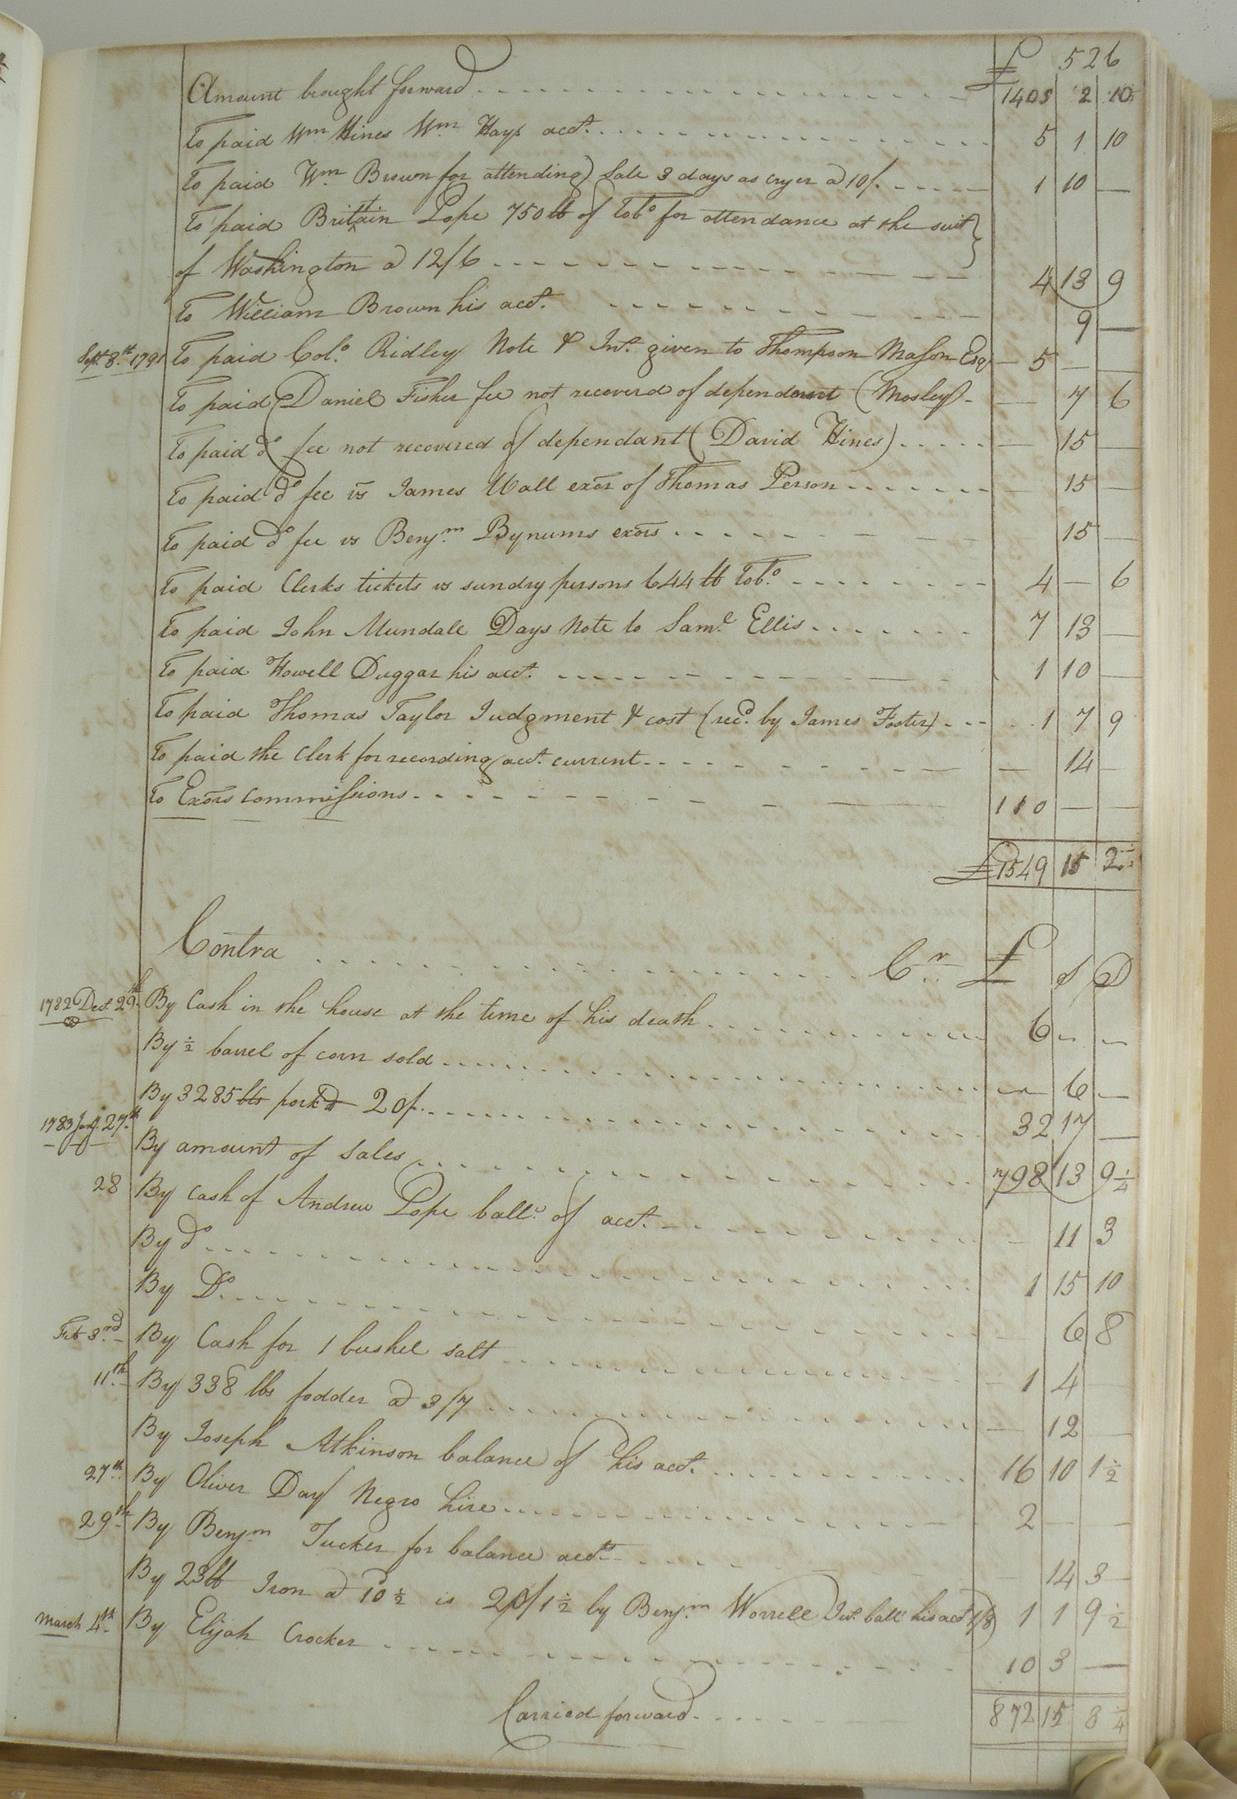 £ 526
Amount brought forward 1405 2 10
To paid Wm Hines Wm Hays acct. 5 1 10
To paid Wm Brown for attending Sale 3 days as cryer a 10/. 1 10 —
To paid Brittain Pope 750 lb of Tobo for attendance at the suit
of Washington a 12/6 4 13 9
To William Brown his acct. 9 —
Sept. 8th 1791 To paid Colo. Ridley Note & Int. given to Thompson Mason Esqr — 5 — —
To paid Daniel Fisher fee not recoverd of dependant (Mosley) — 7 6
To paid do fee not recovered of dependant (David Hines) — 15 —
To paid do fee vs James Wall exor of Thomas Person — 15 —
To paid do fee vs Benjm Bynums exors 15 —
To paid Clerks tickets vs sundry persons 644 lb Tobo 4 — 6
To paid John Mundale Days Note to Saml Ellis 7 13 —
To paid Howell Duggar his acct. 1 10 —
To paid Thomas Taylor Judgment & cost (recd. by James Foster) 1 7 9
To paid the Clerk for recording acct. current — 14 —
To Exors commissions 110 — —
£ 1549 15 2
Contra Cr £ S D
1782 Dec 29th By Cash in the house at the time of his death 6 — —
By ½ barrel of corn sold — 6 —
By 3285 lbs pork a 20/. 32 17 —
1783 Jany 27th By amount of sales 798 13 9¼
28 By Cash of Andrew Pope balle. of acct. — 11 3
By do 1 15 10
By Do. — 6 8
Feb 3rd By Cash for 1 bushel salt 1 4
11th By 338 lbs fodder a 3/7 — 12
By Joseph Atkinson balance of his acct. 16 10 1½
27th By Oliver Day Negro hire 2 — —
29th By Benjm Tucker for balance acct — 14 3
By 23 lb Iron a 10½ is 20/1½ by Benjm Worrell ball his acct 1/8) 1 1 9½
March 4th By Elijah Crocker 10 3 —
Carried forward 872 15 8¼